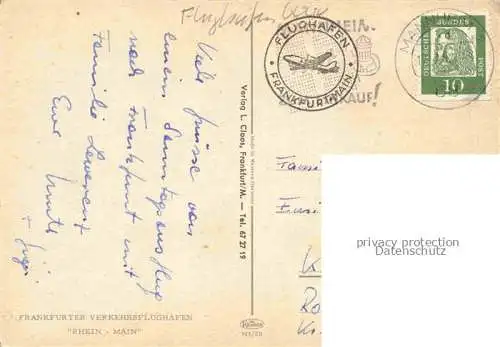 Flughafen
Viele Grüsse von
einem Sonntagsausflug
nach Frankfurt mit
Familie Lewerent
Eure
FRANKFURTER VERKEHRSFLUGHAFEN
"RHEIN - MAIN"
Verlag L. Cloos, Frankfurt/M. — Tel. 67 27 19
FLUGHAFEN
FRANKFURT/MAIN
EIN
KAUF!
DEUTSCHE
BUNDES
POST
10
Fami
privacy protection
Datenschutz